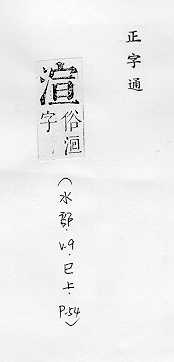 正字通
湹
俗洄
字
(水部.V.9.巳上.P.54)